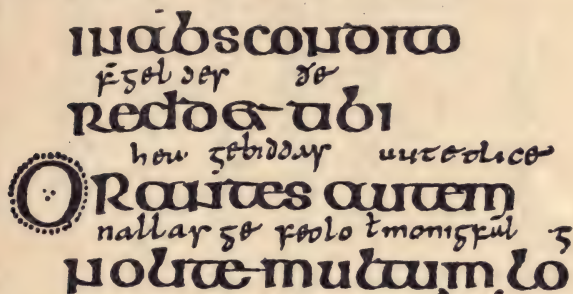 inabscondito
f̄gel des ðe
redd& tibi
gebiddas uutedlice
Orantes autem
nallas ge feolo ł monigful ⁊
nolite multum lo